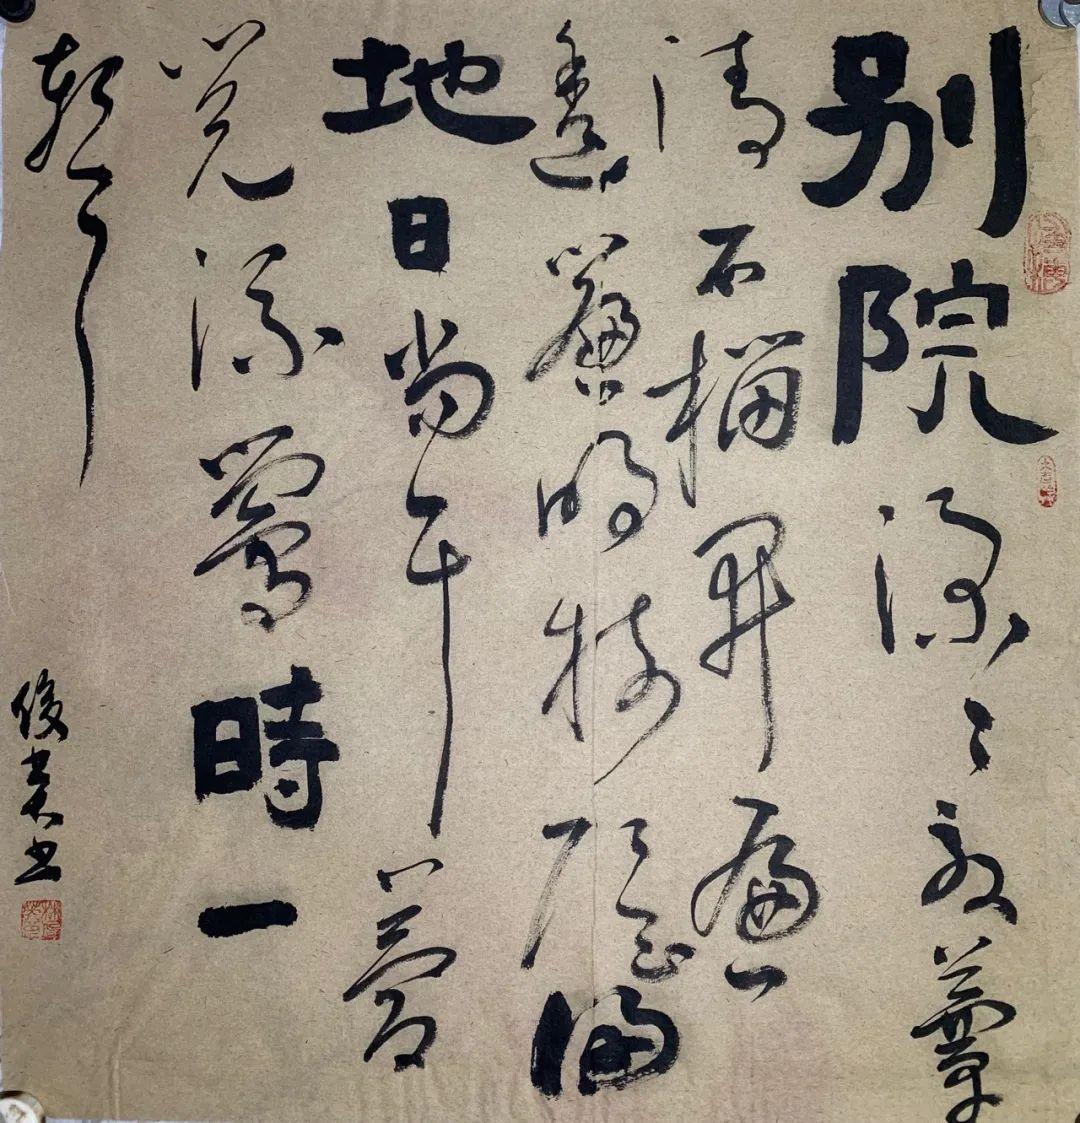 别院深々夏簟
清石榴開遍
透簾明樹陰滿
地日當午夢
覺流鶯時一
聲
俊書